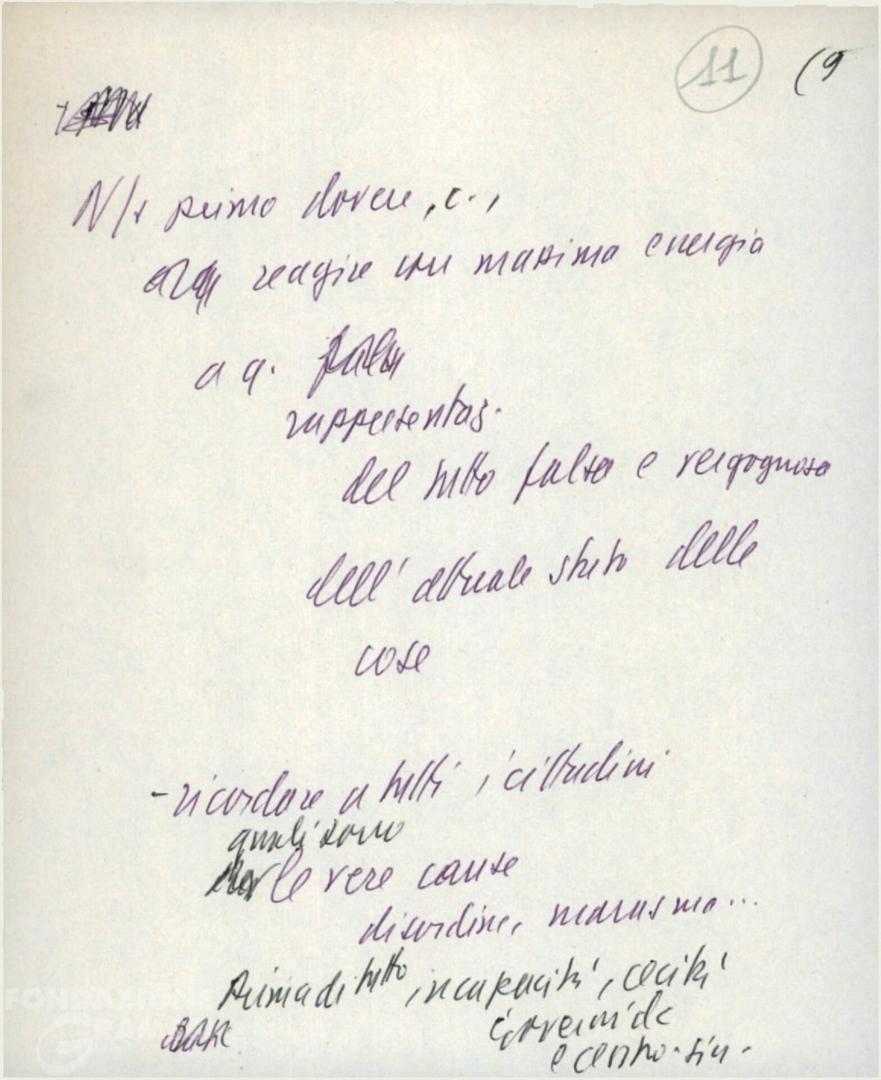 11 (9
N/s primo dovere, c.,
reagire con massima energia
a q.
rappresentaz.
del tutto falsa e vergognosa
dell'attuale stato delle
cose
- ricordare a tutti i cittadini
quali sono
le vere cause
disordine, marasma...
Prima di tutto incapacità, cecità
governi dc
e centro-sin.
FONDAZIONE